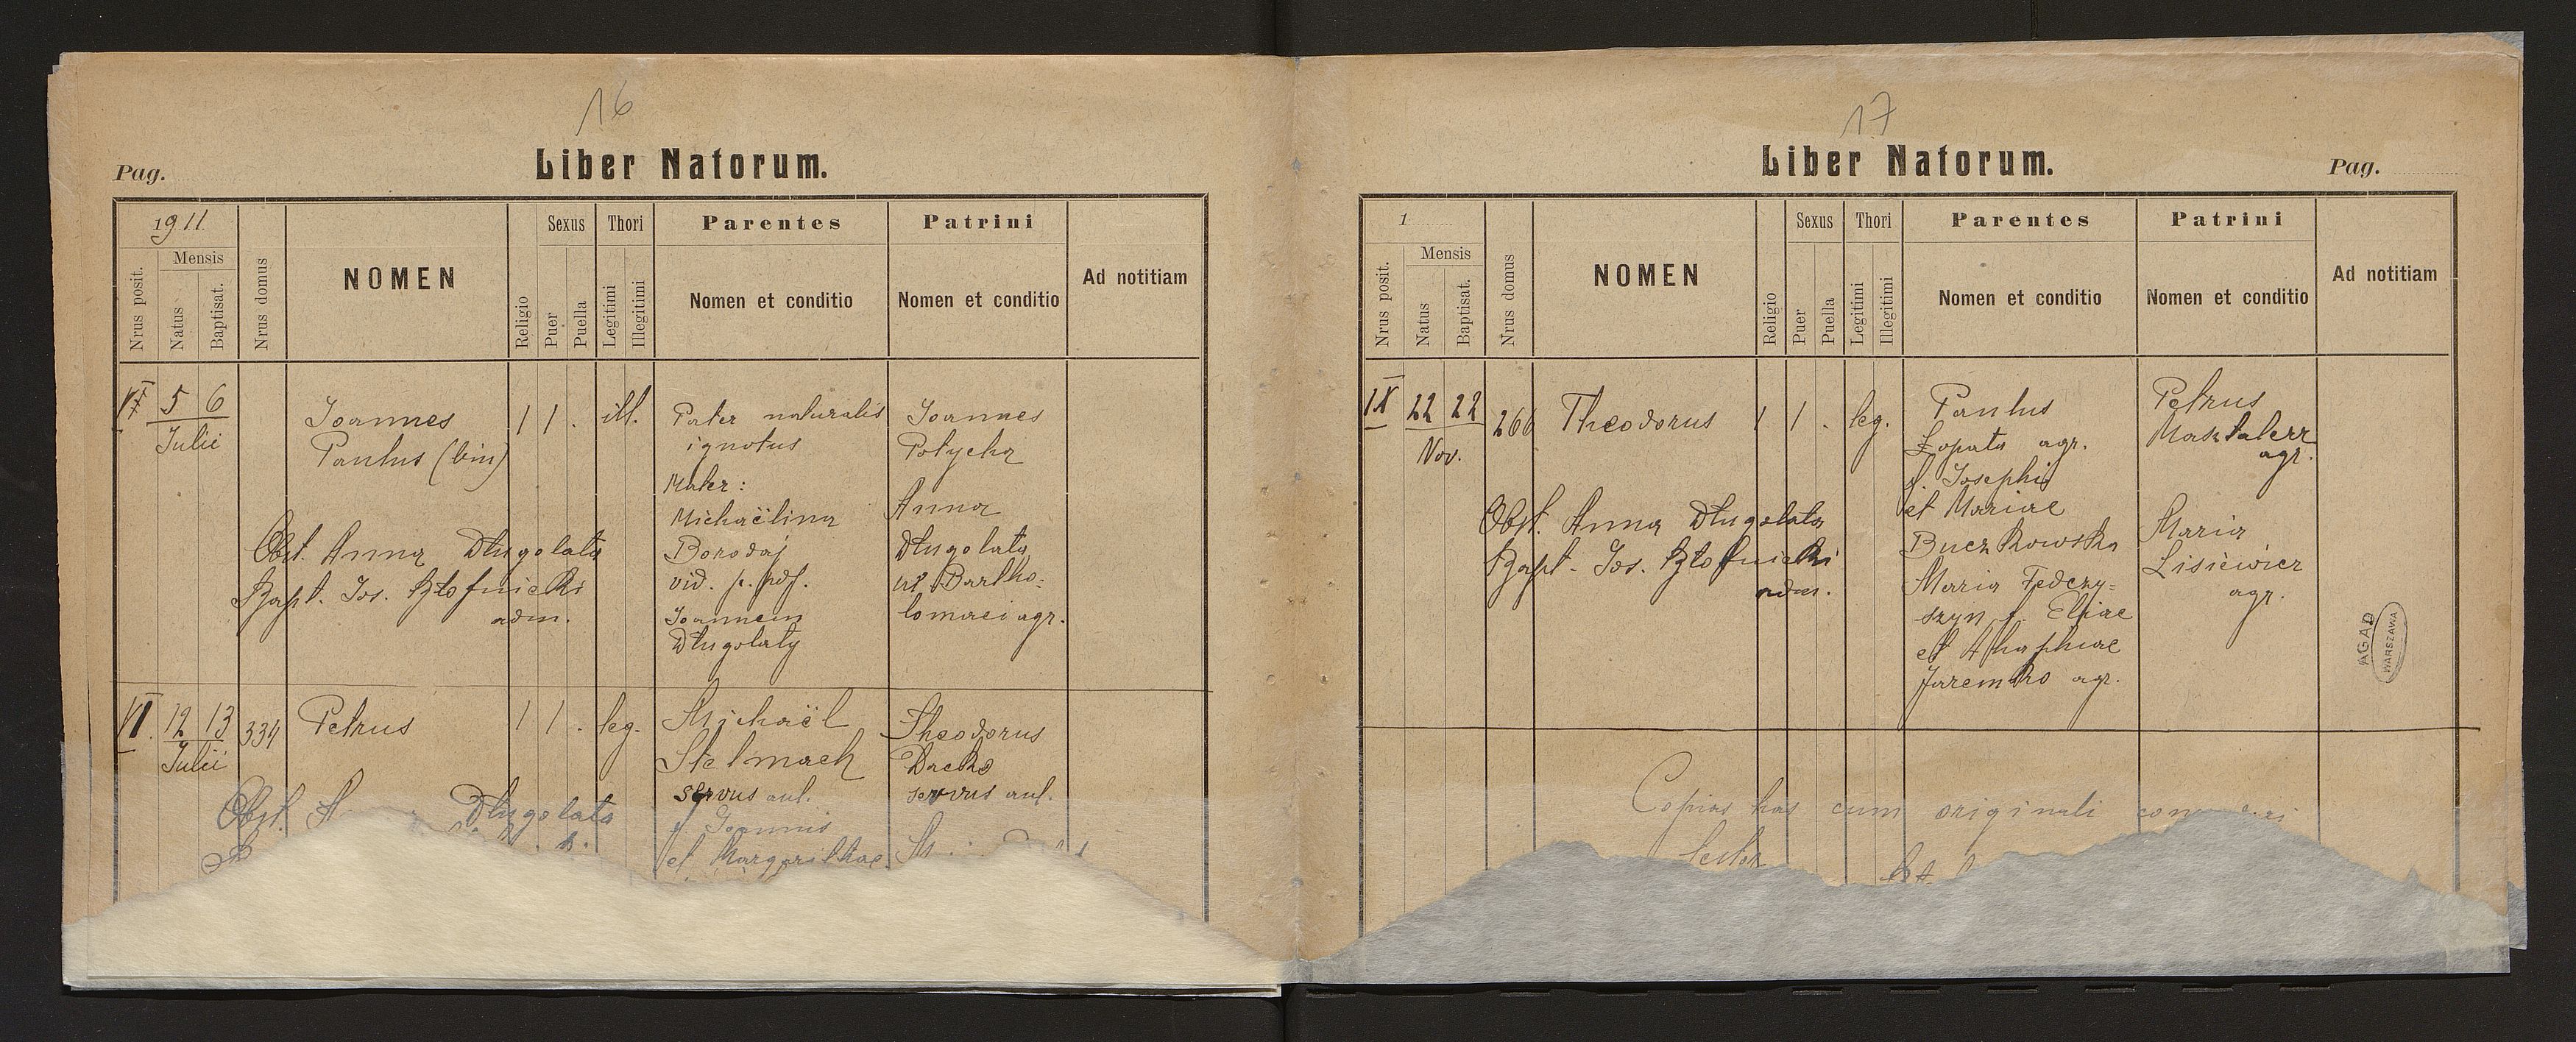 16
Pag.
Liber Natorum.
1911
Nrus posit.
Mensis
Natus
Baptisat.
Nrus domus
NOMEN
Religio
Sexus
Puer
Puella
Thori
Legitimi
Illegitimi
Parentes
Nomen et conditio
Patrini
Nomen et conditio
Ad notitiam
5 6
Julii
Joannes
Paulus (bin)
1 1 . ill.
Pater naturalis
ignotus
Mater:
Michaëlina
Borodaj
vid. p. def.
Joannem
Długolaty
Joannes
Potycha
Anna
Długolata
ux. Bartho-
lomaei agr.
Obst. Anna Długolata
Bapt. Jos.
adm.
VI. 12 13
Julii
334
Petrus
1 1 . leg.
Michaël
Stelmach
servus aul.
f. Joannis
et Margarithae
Theodorus
Dacko
servus aul.
Obst. Długolata
17
Liber Natorum.
Pag.
1
Nrus posit.
Mensis
Natus
Baptisat.
Nrus domus
NOMEN
Religio
Sexus
Puer
Puella
Thori
Legitimi
Illegitimi
Parentes
Nomen et conditio
Patrini
Nomen et conditio
Ad notitiam
IX 22 22
Nov.
266
Theodorus
1 1 . leg.
Paulus
Łopata agr.
f. Josephi
et Mariae
Buczkowska
Maria Fedczy-
szyn f. Eliae
et Ahaphiae
Jaremko agr.
Petrus
Masztalerz
agr.
Maria
Lisiewicz
agr.
Obst. Anna Długolata
Bapt. Jos.
adm.
AGAD
WARSZAWA
Copias has cum originali